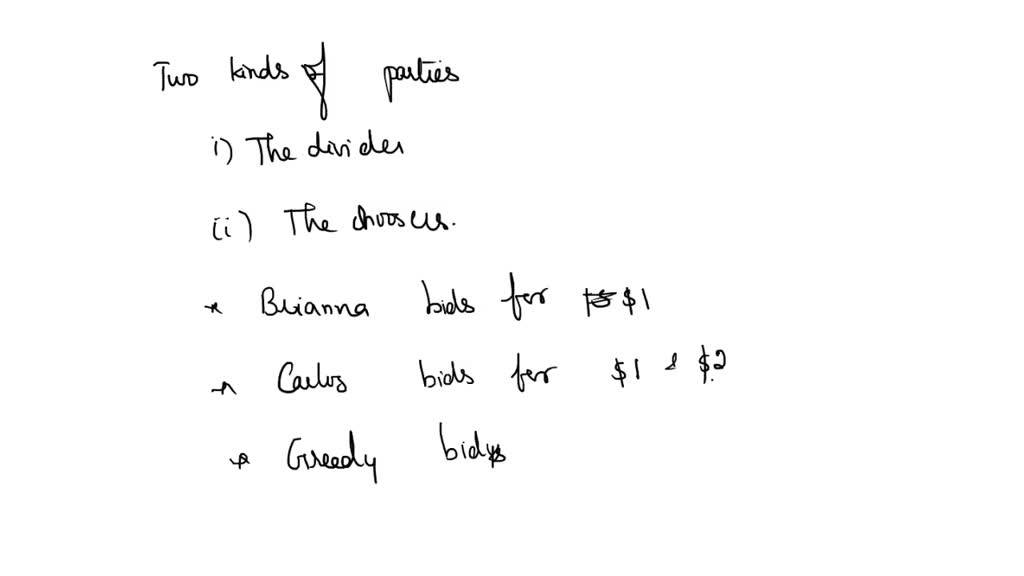 Two kinds of parties
i) The divider
(ii) The choosers.
* Brianna bids for $1
* Carlos bids for $1 & $2
* Greedy bids